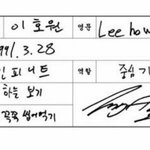 이호원 영문 Lee how
991. 3. 28
인피니트 역할 중심
하늘 보기
꼭꼭 씹어먹기